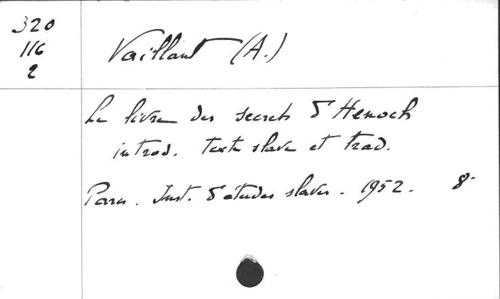 320
116
2
Vaillant (A.)
Le livre des secrets d'Henoch
introd. texte slave et trad.
Paris. Inst. d'études slaves. 1952. 8°